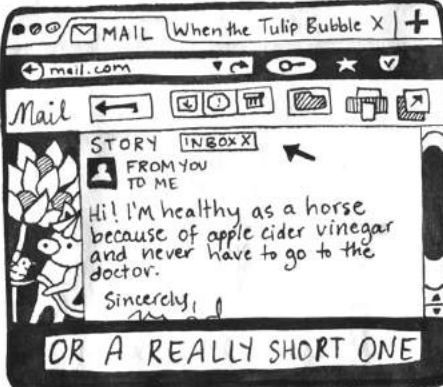 MAIL
When the Tulip Bubble X
+
mail.com
Mail
STORY INBOX X
FROM YOU
TO ME
Hi! I'm healthy as a horse
because of apple cider vinegar
and never have to go to the
doctor.
Sincerely,
OR A REALLY SHORT ONE